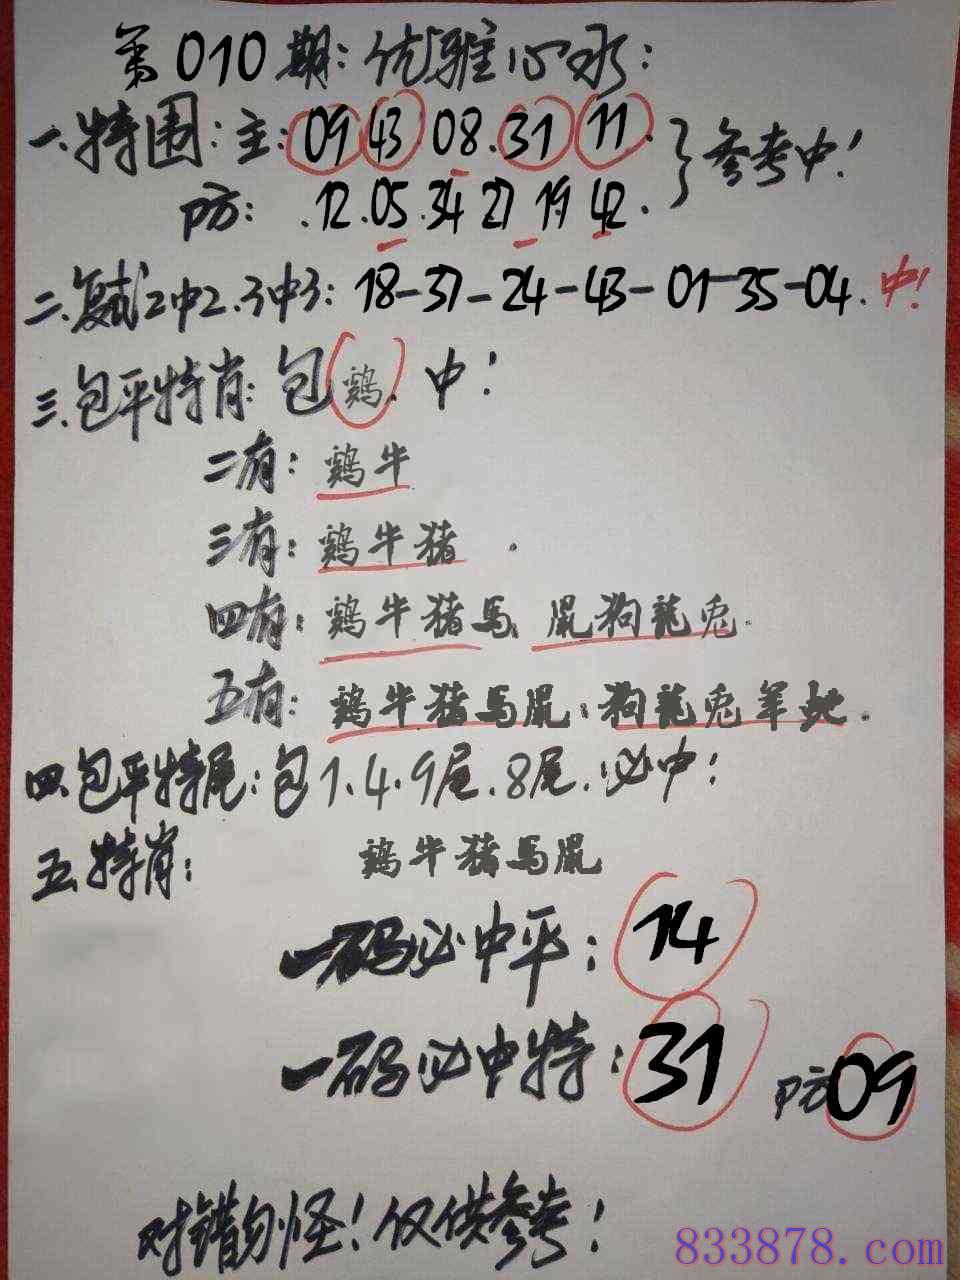 第010期:优雅心水:
一.特围:主:09 43·08·31 11·
防:·12·05·34 27 19 42·
参考中!
二.复试2中2.3中3:18-37-24-43-01-35-04.中!
三.包平特肖:包鷄.中!
二有:鷄牛
三有:鷄牛猪.
四有:鷄牛猪馬 鼠狗龍兎.
五有:鷄牛猪馬鼠.狗龍兎羊虵.
四.包平特尾:包1.4.9尾.8尾.必中!
五.特肖:鷄牛猪馬鼠
一码必中平:14
一码必中特:31 防09
对错勿怪!仅供参考!
833878.com